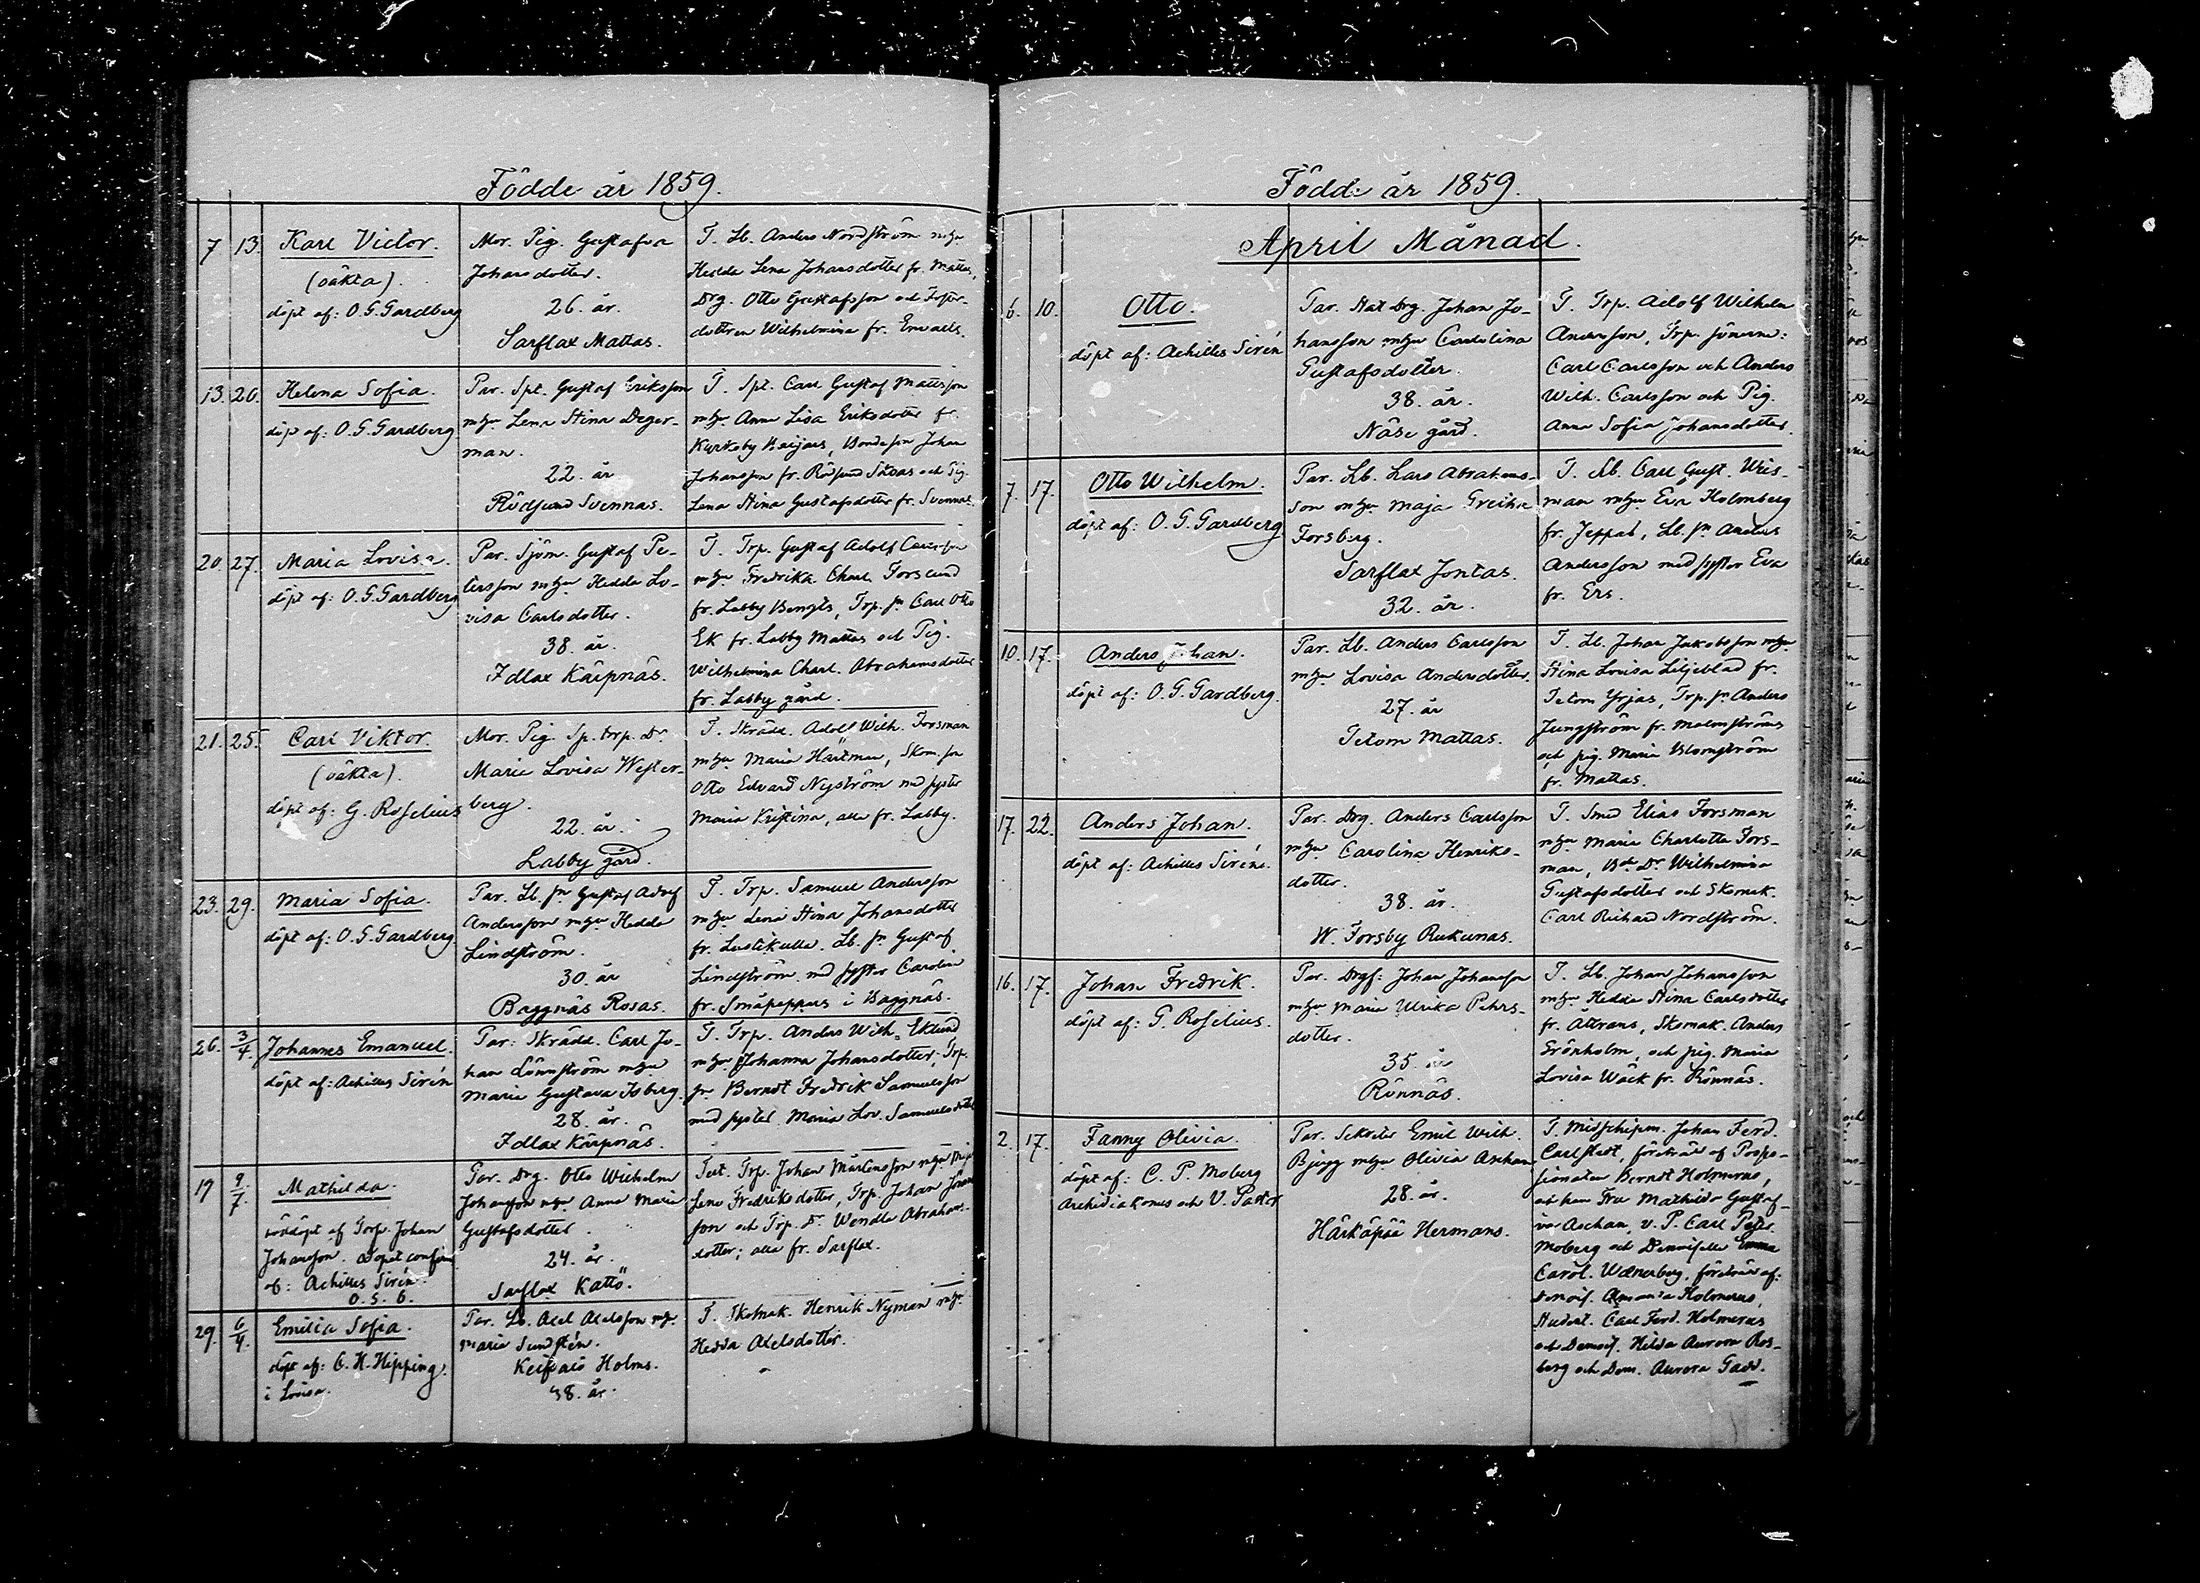 Födde år 1859.
7 13. Karl Victor.
(oäkta).
döpt af: O. G. Gardberg
Mor. Pig. Gustafva
Johansdotter.
26. år.
Sarflax Mattas.
T. Lb. Anders Nordström mhu
Hedda Lena Johansdotter fr. Mattas,
Drg. Otto Gustafsson och Foster-
dottren Wilhelmina fr. Envaels.
13. 20. Helena Sofia.
döpt af: O. G. Gardberg
Par. Spt. Gustaf Eriksson
mhu Lena Stina Deger-
man.
22. år
Rödsund Svennas.
T. Spt. Carl Gustaf Mattsson
mhu Anna Lisa Eriksdotter fr.
Kurkeby Beijars, Bondeson Johan
Johansson fr. Rösund Skvas och Pig.
Lena Stina Gustafsdotter fr. Svennas
20. 27. Maria Lovisa.
döpt af: O. G. Gardberg
Par. Sjöm. Gustaf Pe-
tersson mhu Hedda Lo-
visa Carlsdotter.
38. år.
Idlax Kärpnäs.
T. Trp. Gustaf Adolf Carlsson
mhu Fredrika Charl. Forslund
fr. Labby Bengts, Trp. sn Carl Otto
Ek fr. Labby Mattas och Pig.
Wilhelmina Charl. Abrahamsdotter
fr. Labby gård.
21. 25. Carl Viktor.
(oäkta).
döpt af: G. Roselius
Mor. Pig. Sp. trp. Dr
Maria Lovisa Wester-
berg.
22. år.
Labby gård.
T. Skrädd. Adolf Wilh. Forsman
mhu Maria Hartman, Skom. son
Otto Edvard Nyström med syster
Maria Kristina, alla fr. Labby.
23. 29. Maria Sofia.
döpt af: O. G. Gardberg
Par. Lb. sn Gustaf Adolf
Andersson mhu Hedda
Lindström.
30. år
Baggnäs Rosas.
T. Trp. Samuel Andersson
mhu Lena Stina Johansdotter
fr. Lustikulla. Lb. sn Gustaf
Lindström med syster Carolin
fr. Småpeppars i Baggnäs.
26. 3/4. Johannes Emanuel.
döpt af: Achilles Sirén
Par: Skrädd. Carl Jo-
han Lönnström mhu
Maria Gustava Isberg.
28. år.
Idlax Kärpnäs.
T. Trp. Anders Wilh. Eklund
mhu Johanna Johansdotter, Trp.
sn Berndt Fredrik Samuelsson
med syster Maria Lov. Samuelsdotter
19 9/7. Mathilda.
nöddöpt af Torp. Johan
Johansson. Dopet confirm.
af: Achilles Sirén.
O. S. G.
Par. Drg. Otto Wilhelm
Johansson mhu Anna Maria
Gustafsdotter.
24. år.
Sarflax Kattö.
Test. Trp. Johan Mårtensson mhu Maja
Lena Fredriksdotter, Trp. Johan Jöran
son och Trp. Dr. Wendla Abrahams-
dotter; alla fr. Sarflax.
29. 6/4. Emilia Sofia.
döpt af: C. H. Hipping
i Lovisa.
Par. Lb. Axel Axelsson mhu
Maria Sundstén.
Holms.
38. år.
T. Skomak. Henrik Nyman mhu
Hedda Axelsdotter.
Födde år 1859.
April Månad.
6. 10. Otto.
döpt af: Achilles Sirén
Par. Stat Drg. Johan Jo-
hansson mhu Carolina
Gustafsdotter.
38. år.
Näse gård.
T. Trp. Adolf Wilhelm
Andersson, Trp. sönerne:
Carl Carlsson och Anders
Wilh. Carlsson och Pig.
Anna Sofia Johansdotter.
7. 17. Otto Wilhelm.
döpt af: O. G. Gardberg
Par. Lb. Lars Abrahams-
son mhu Maja Greta
Forsberg.
Sarflax Jontas.
32. år.
T. Lb. Carl Gust. Wies-
man mhu Eva Holmberg
fr. Jeppas, Lb. sn Anders
Andersson med syster Eva
fr. Ers.
10. 17. Anders Johan.
döpt af: O. G. Gardberg.
Par. Lb. Anders Carlsson
mhu Lovisa Andersdotter.
27. år
Tetom Mattas.
T. Lb. Johan Jakobsson mhu
Stina Lovisa Liljeblad fr.
Tetom Yrjas, Trp. sn Anders
Jungström fr. Malmströms
och pig. Maria Blomström
fr. Mattas.
17. 22. Anders Johan.
döpt af: Achilles Sirén.
Par. Drg. Anders Carlsson
mhu Carolina Henriks-
dotter.
38. år.
W. Forsby Rukunas.
T. Smed Elias Forsman
mhu Maria Charlotta Fors-
man, Bd. Dr Wilhelmina
Gustafsdotter och Skomak.
Carl Richard Nordström.
16. 17. Johan Fredrik.
döpt af: G. Roselius.
Par. Drgs: Johan Johansson
mhu Maria Ulrika Pehrs-
dotter.
35. år
Rönnäs.
T. Lb. Johan Johansson
mhu Hedda Stina Carlsdotter
fr. Åttrans, Skomak. Anders
Grönholm, och pig. Maria
Lovisa Wäck fr. Rönnäs.
2. 17. Fanny Olivia.
döpt af: C. P. Moberg
Archidiakonus och V. Pastor
Par. Sekreter Emil Wilh.
Bjugg mhu Olivia Aschan
28. år.
Härkäpää Hermans.
T. Midschipm. Johan Ferd.
Carlstedt, företrädd af Posses-
sionaten Berndt Holmerus,
och han Fru Mathilda Gustaf-
va Aschan, v. P. Carl Peter
Moberg och Demoiselle Emma
Carol. Wænerberg, företrädd af:
Demois. Amanda Holmerus,
Student. Carl Ferd. Holmerus
och Demois. Hilda Aurora Ros-
berg och Dem. Aurora Gadd.